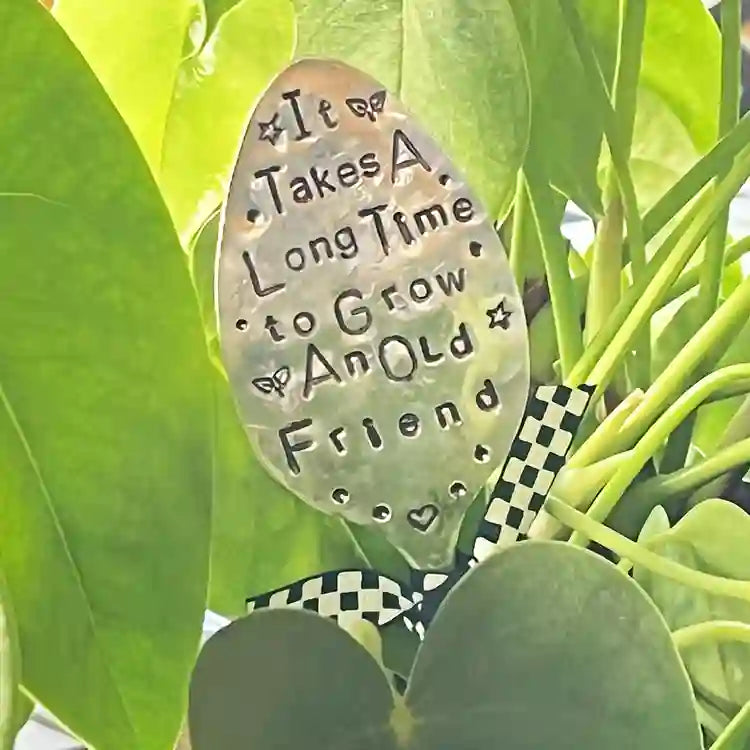 It
Takes A
Long Time
to Grow
An OLd
Friend